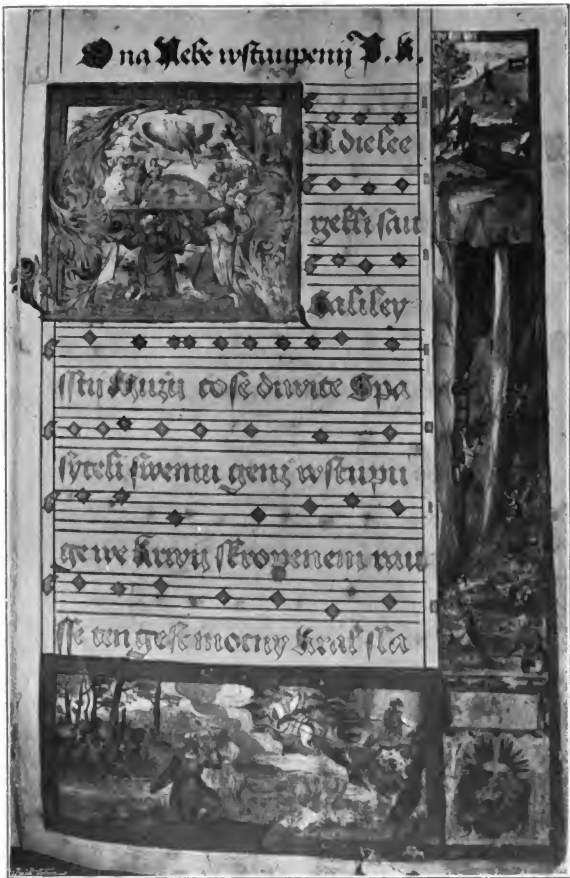 O na Nebe wstaupenij P. K.
Udielee
gessi sau
Galiley
sstij Muzij co se diwite Spa
syteli swemu genz wstupu
ge we krwij skropenem rau
sse ten gest mocny Kral sla